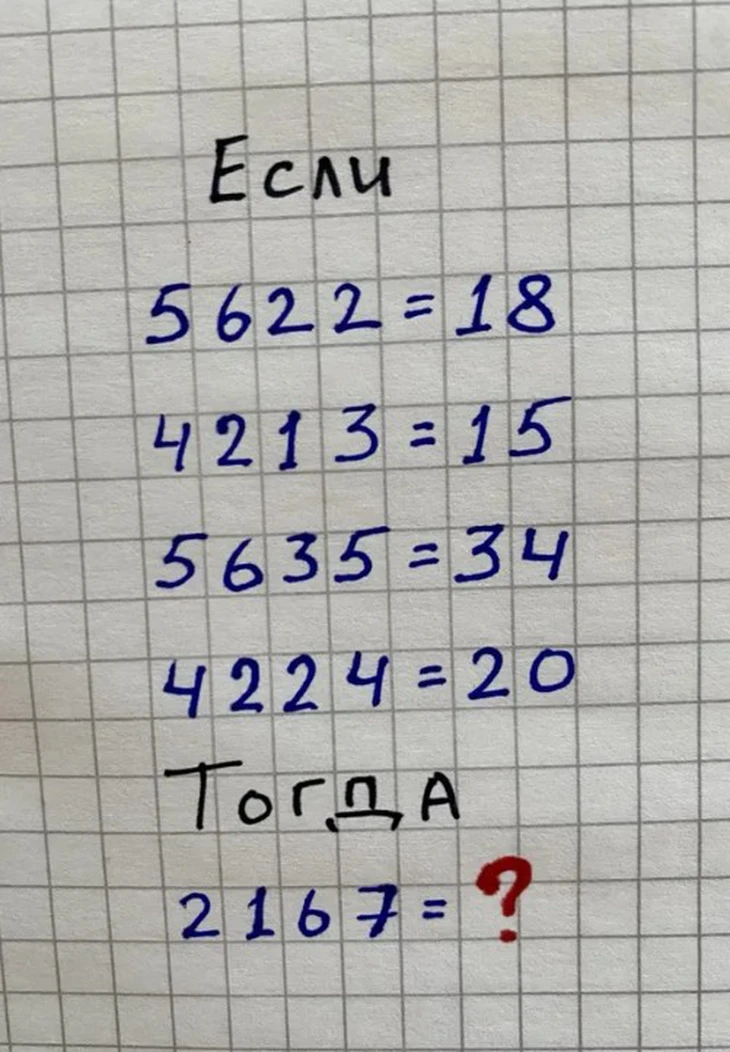 Если
5622=18
4213=15
5635=34
4224=20
ТогдА
2167=?